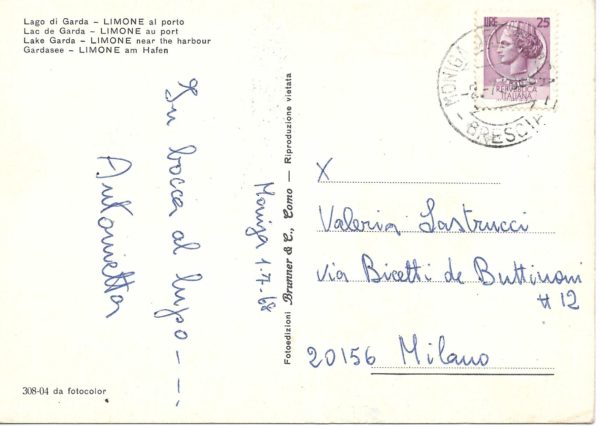 Lago di Garda – LIMONE al porto
Lac de Garda – LIMONE au port
Lake Garda – LIMONE near the harbour
Gardasee – LIMONE am Hafen
In bocca al lupo – –.
Antonietta
Moniga 1-7-68
Fotoedizioni Brunner & C., Como — Riproduzione vietata
308-04 da fotocolor
LIRE 25
REPUBBLICA
ITALIANA
MONIGA DEL
BRESCIA
X
Valeria Lastrucci
via Bicetti de Buttinoni
# 12
20156 Milano